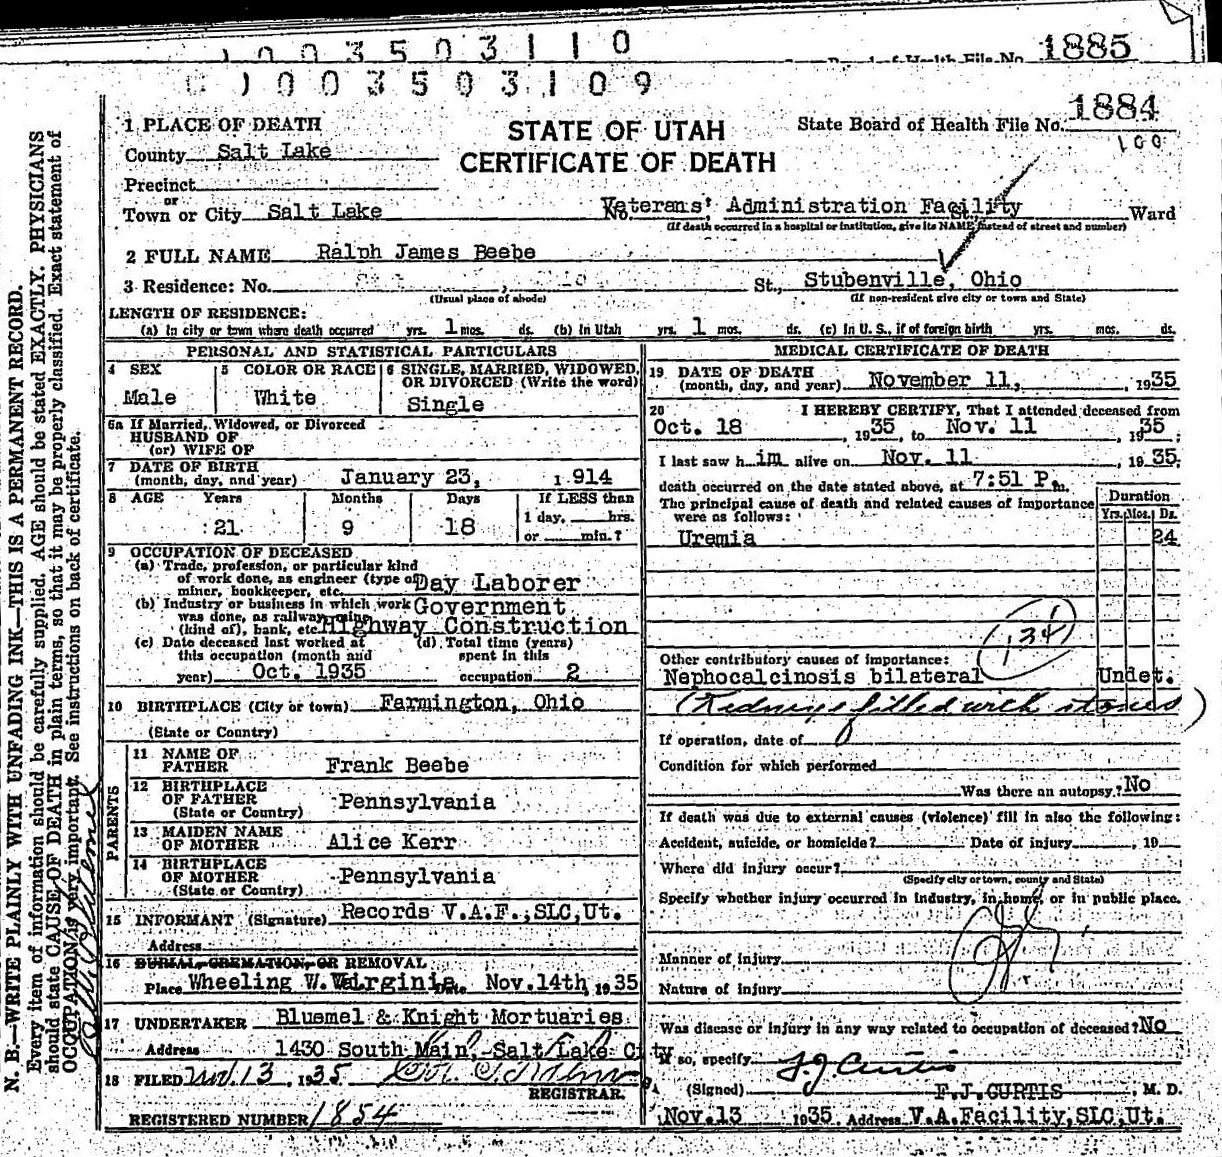 1003503110
Board of Health File No. 1885
1003503109
1884
State Board of Health File No.
100
STATE OF UTAH
CERTIFICATE OF DEATH
1 PLACE OF DEATH
County Salt Lake
Precinct
or
Town or City Salt Lake
No. Veterans' Administration Facility St., Ward
(If death occurred in a hospital or institution, give its NAME instead of street and number)
2 FULL NAME Ralph James Beebe
3 Residence: No. St., Stubenville, Ohio
(Usual place of abode) (If non-resident give city or town and State)
LENGTH OF RESIDENCE:
(a) In city or town where death occurred yrs. 1 mos. ds. (b) In Utah yrs. 1 mos. ds. (c) In U. S., if of foreign birth yrs. mos. ds.
PERSONAL AND STATISTICAL PARTICULARS
4 SEX
Male
5 COLOR OR RACE
White
6 SINGLE, MARRIED, WIDOWED,
OR DIVORCED (Write the word)
Single
6a If Married, Widowed, or Divorced
HUSBAND OF
(or) WIFE OF
7 DATE OF BIRTH
(month, day, and year) January 23, 1914
8 AGE Years Months Days If LESS than
21 9 18 1 day, hrs.
or min.?
9 OCCUPATION OF DECEASED
(a) Trade, profession, or particular kind
of work done, as engineer (type of
miner, bookkeeper, etc. Day Laborer
(b) Industry or business in which work Government
was done, as railway, mine
(kind of), bank, etc. Highway Construction
(c) Date deceased last worked at (d) Total time (years)
this occupation (month and spent in this
year) Oct. 1935 occupation 2
10 BIRTHPLACE (City or town) Farmington, Ohio
(State or Country)
PARENTS
11 NAME OF
FATHER Frank Beebe
12 BIRTHPLACE
OF FATHER Pennsylvania
(State or Country)
13 MAIDEN NAME
OF MOTHER Alice Kerr
14 BIRTHPLACE
OF MOTHER Pennsylvania
(State or Country)
15 INFORMANT (Signature) Records V.A.F.,SLC,Ut.
Address
16 BURIAL, CREMATION, OR REMOVAL
Place Wheeling W. Virginia Date Nov.14th, 1935
17 UNDERTAKER Bluemel & Knight Mortuaries
Address 1430 South Main, Salt Lake City
18 FILED Nov. 13, 1935
REGISTRAR.
REGISTERED NUMBER 1854
MEDICAL CERTIFICATE OF DEATH
19 DATE OF DEATH
(month, day, and year) November 11, , 1935
20 I HEREBY CERTIFY, That I attended deceased from
Oct. 18 , 1935, to Nov. 11 , 1935;
I last saw him alive on Nov. 11 , 1935;
death occurred on the date stated above, at 7:51 P.m.
The principal cause of death and related causes of importance
were as follows:
Duration
Yrs. Mos. Ds.
Uremia 24
134
Other contributory causes of importance:
Nephocalcinosis bilateral Undet.
(Kidneys filled with stones)
If operation, date of
Condition for which performed
Was there an autopsy? No
If death was due to external causes (violence) fill in also the following:
Accident, suicide, or homicide? Date of injury , 19
Where did injury occur?
(Specify city or town, county and State)
Specify whether injury occurred in industry, in home, or in public place.
Manner of injury
Nature of injury
Was disease or injury in any way related to occupation of deceased? No
If so, specify
F J Curtis
(Signed) F.J.CURTIS , M. D.
Nov.13 1935. Address V.A.Facility,SLC,Ut.
N. B.—WRITE PLAINLY WITH UNFADING INK—THIS IS A PERMANENT RECORD.
Every item of information should be carefully supplied. AGE should be stated EXACTLY. PHYSICIANS
should state CAUSE OF DEATH in plain terms, so that it may be properly classified. Exact statement of
OCCUPATION is very important. See instructions on back of certificate.